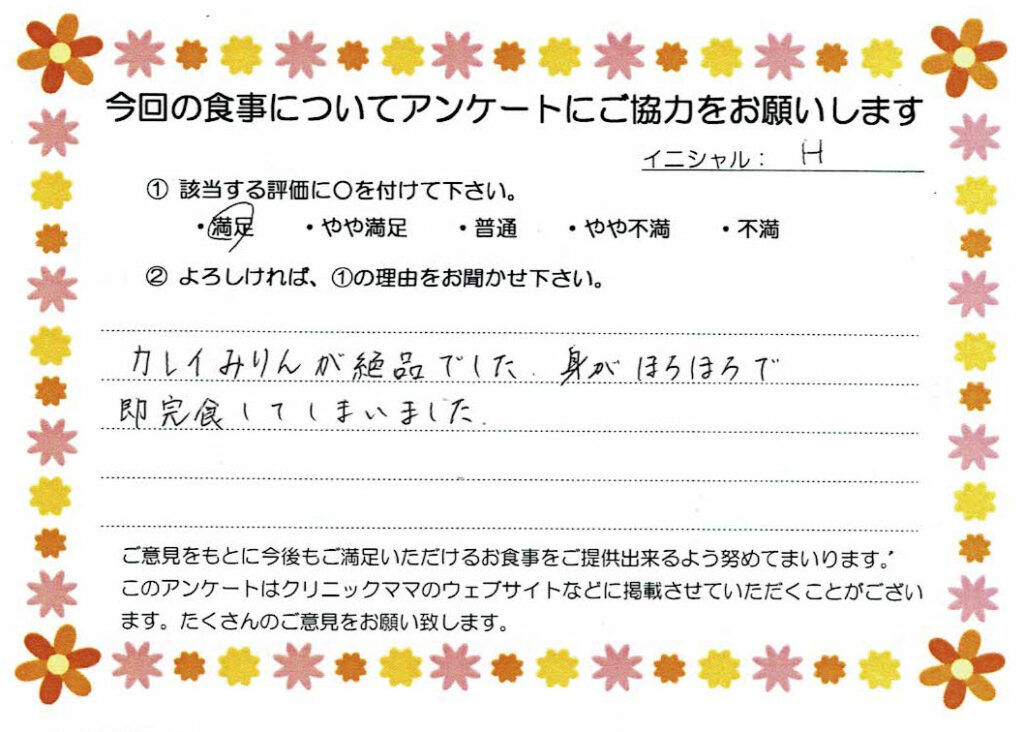 今回の食事についてアンケートにご協力をお願いします
イニシャル： H
① 該当する評価に〇を付けて下さい。
・満足 ・やや満足 ・普通 ・やや不満 ・不満
② よろしければ、①の理由をお聞かせ下さい。
カレイみりんが絶品でした. 身がほろほろで
即完食してしまいました.
ご意見をもとに今後もご満足いただけるお食事をご提供出来るよう努めてまいります。
このアンケートはクリニックママのウェブサイトなどに掲載させていただくことがござい
ます。たくさんのご意見をお願い致します。